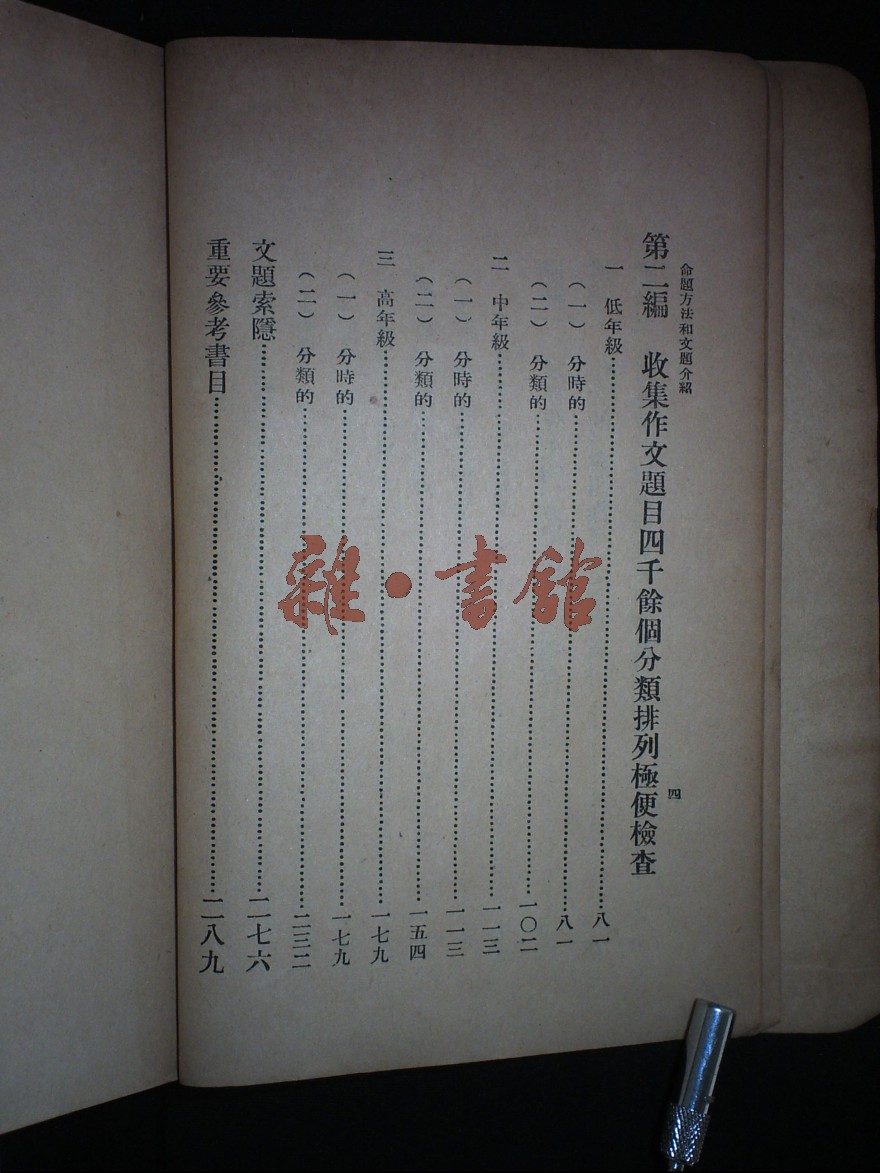 命題方法和文題介紹
四
第二編　收集作文題目四千餘個分類排列極便檢查
一　低年級……八一
（一）　分時的……八一
（二）　分類的……一〇二
二　中年級……一一三
（一）　分時的……一一三
（二）　分類的……一五四
三　高年級……一七九
（一）　分時的……一七九
（二）　分類的……二三二
文題索隱……二七六
重要參考書目……二八九
雜·書館